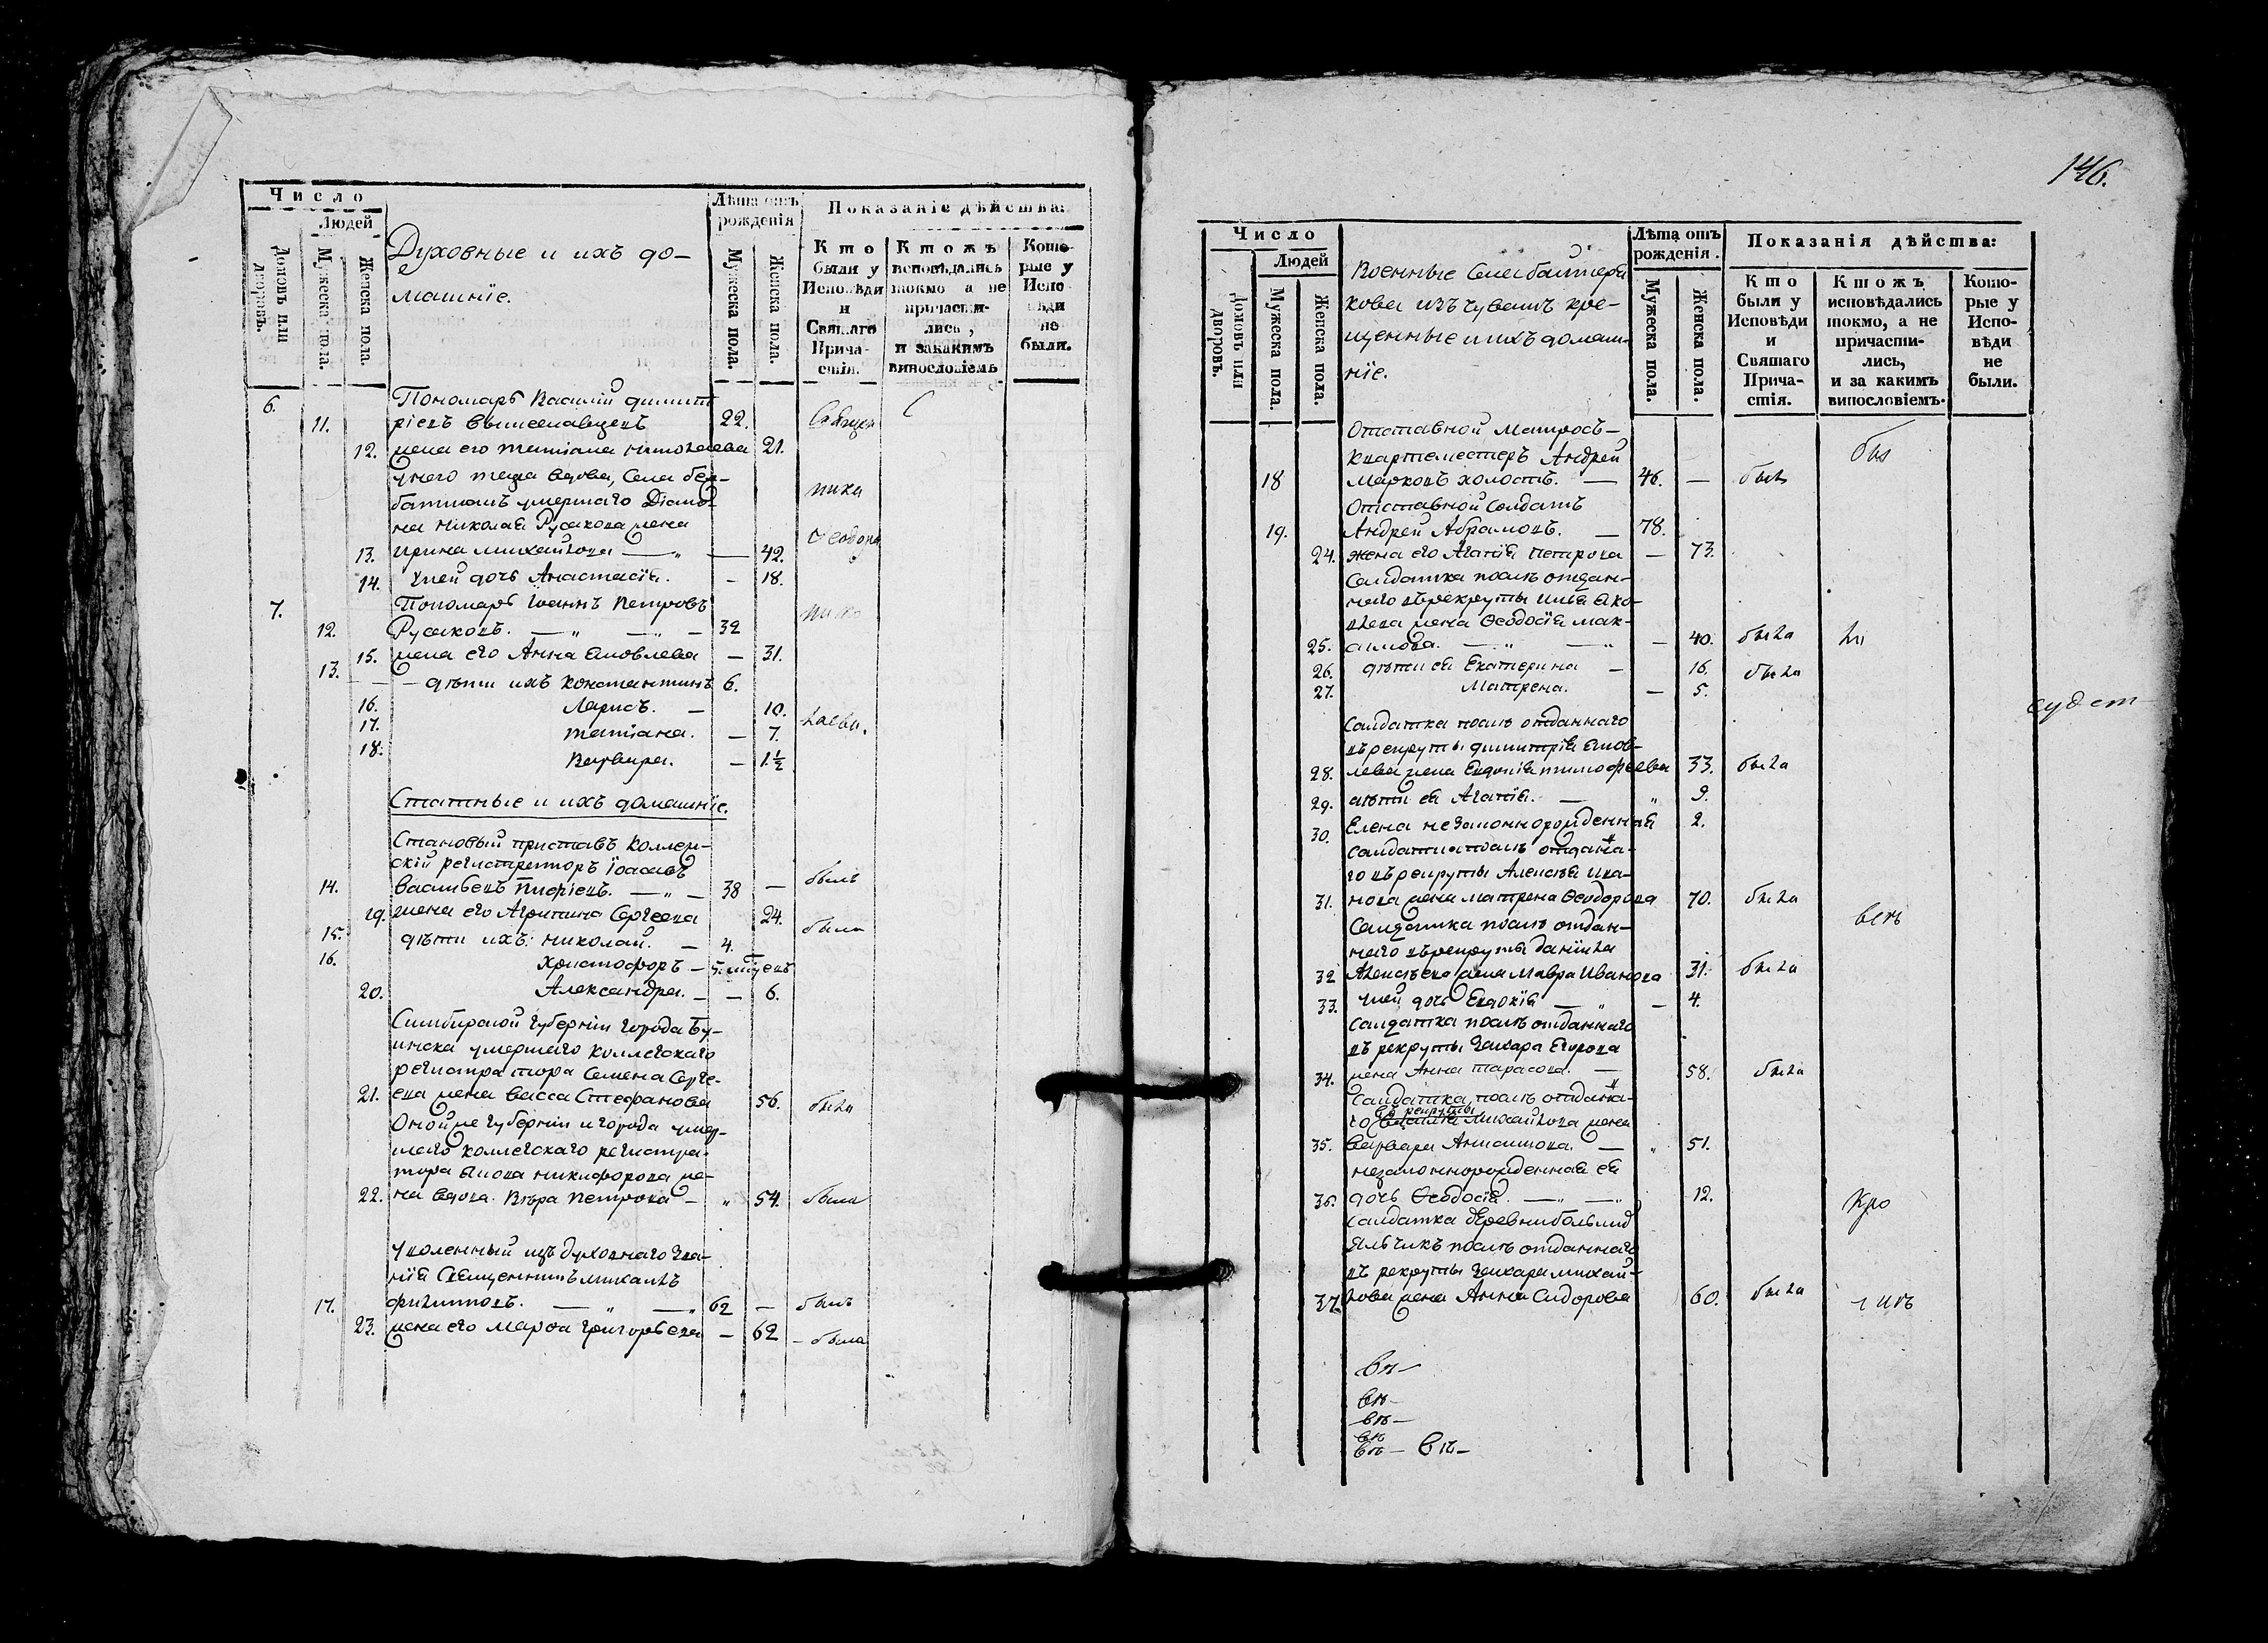 Число
Людей
Домовъ или дворовъ.
Мужеска пола.
Женска пола.
Духовные и ихъ до-
машніе.
Лѣта отъ рожденія
Мужеска пола.
Женска пола.
Показаніе дѣйства:
Кто были у Исповѣди и Святаго Прича-стія.
Ктожъ исповѣдались токмо а не причасти-лись, и закакимъ винословіемъ
Кото-рые у Испо-вѣди не были.
6.
Пономарь Василій Димит
11. ріевъ Вышеславцевъ 22.
12. жена его Татіана Николаева 21.
у него теща вдова, Села
батманъ умершаго Діако-
на Николая Русакова жена
13. Ирина Михайлова — „ — 42.
14. у ней дочь Анастасія. - 18.
7. Пономарь Іоаннъ Петровъ
12. Русаковъ. — „ — „ — 32
15. жена его Анна Яковлева — 31.
13. — дѣти ихъ Константинъ 6.
16. Ларисъ. — 10.
17. Татіана. — 7.
18. Варвара. — 1½
Священ
ника
Ѳеодора
нико
лаева.
Статные и ихъ домашніе.
Становый приставъ Коллеж-
скій регистраторъ Іоасавъ
14. Васильевъ — „ — 38 — былъ
19. жена его Агрипина Сергеева 24. была
15. дѣти ихъ: Николай. — 4.
16. Христофоръ — 5. мѣсецъ
20. Александра. — — 6.
Симбирской губерніи города Бу-
инска умершаго коллегскаго
регистратора Семена Серге-
21. ева жена Васса Стефанова 56. была
Оной же губерніи и города умер-
шаго коллегскаго регистра-
тора Якова Никифорова же-
22. на вдова Вѣра Петрова — „ 54. была
Уволенный изъ духовнаго зва-
нія Священникъ Михаилъ
17. Филиповъ. — „ — „ 62 — былъ
23. жена его Марѳа Григорьева — 62 — была
146.
Число
Людей
Домовъ или дворовъ.
Мужеска пола.
Женска пола.
Военные Села Байтеря
кова изъ чувашъ кре-
щенные и ихъ домаш-
ніе.
Лѣта отъ рожденія.
Мужеска пола.
Женска пола.
Показанія дѣйства:
Кто были у Исповѣди и Святаго Прича-стія.
Ктожъ исповѣдались токмо, а не причасти-лись, и за какимъ винословіемъ.
Кото-рые у Испо-вѣди не были.
Отставной Матросъ —
квартеместеръ Андрей
18 Марковъ холостъ. — 46. — былъ
Отставной Солдатъ
19. Андрей Абрамовъ. — 78.
24. жена его Агапія Петрова — 73.
Солдатка послѣ отдан-
наго въ рекруты Ильи Яко-
влева жена Ѳеодосія Мак-
25. симова. — „ — „ — 40. была
26. дѣти ея Екатерина — 16. была
27. Матрена. — 5.
Солдатка послѣ отданнаго
въ рекруты Димитрія Яков-
28. лева жена Евдокія Тимофеева 33. была
29. дѣти ея Агапія. — „ 9.
30. Елена незаконнорожденная 2.
Солдатка послѣ отданна-
го въ рекруты Алексѣя Ива-
31. нова жена Матрена Ѳеодорова 70. была
Солдатка послѣ отдан-
наго въ рекруты Данила
32 Алексѣева жена Мавра Иванова 31. была
33. у ней дочь Евдокія — „ — 4.
Солдатка послѣ отданнаго
въ рекруты Захара Егорова
34. жена Анна Тарасова. — 58. была
Солдатка послѣ отданна-
въ рекруты
го Василья Михайлова жена
35. Варвара Анисимова. — „ 51.
незаконнорожденная ея
36. дочь Ѳеодосія. — „ — „ 12.
Солдатка деревни большихъ
Яльчикъ послѣ отданнаго
въ рекруты Захара Михай-
37. лова жена Анна Сидорова 60. была
судет
вѣ—
вѣ—
вѣ—
вѣ
вѣ— вѣ—